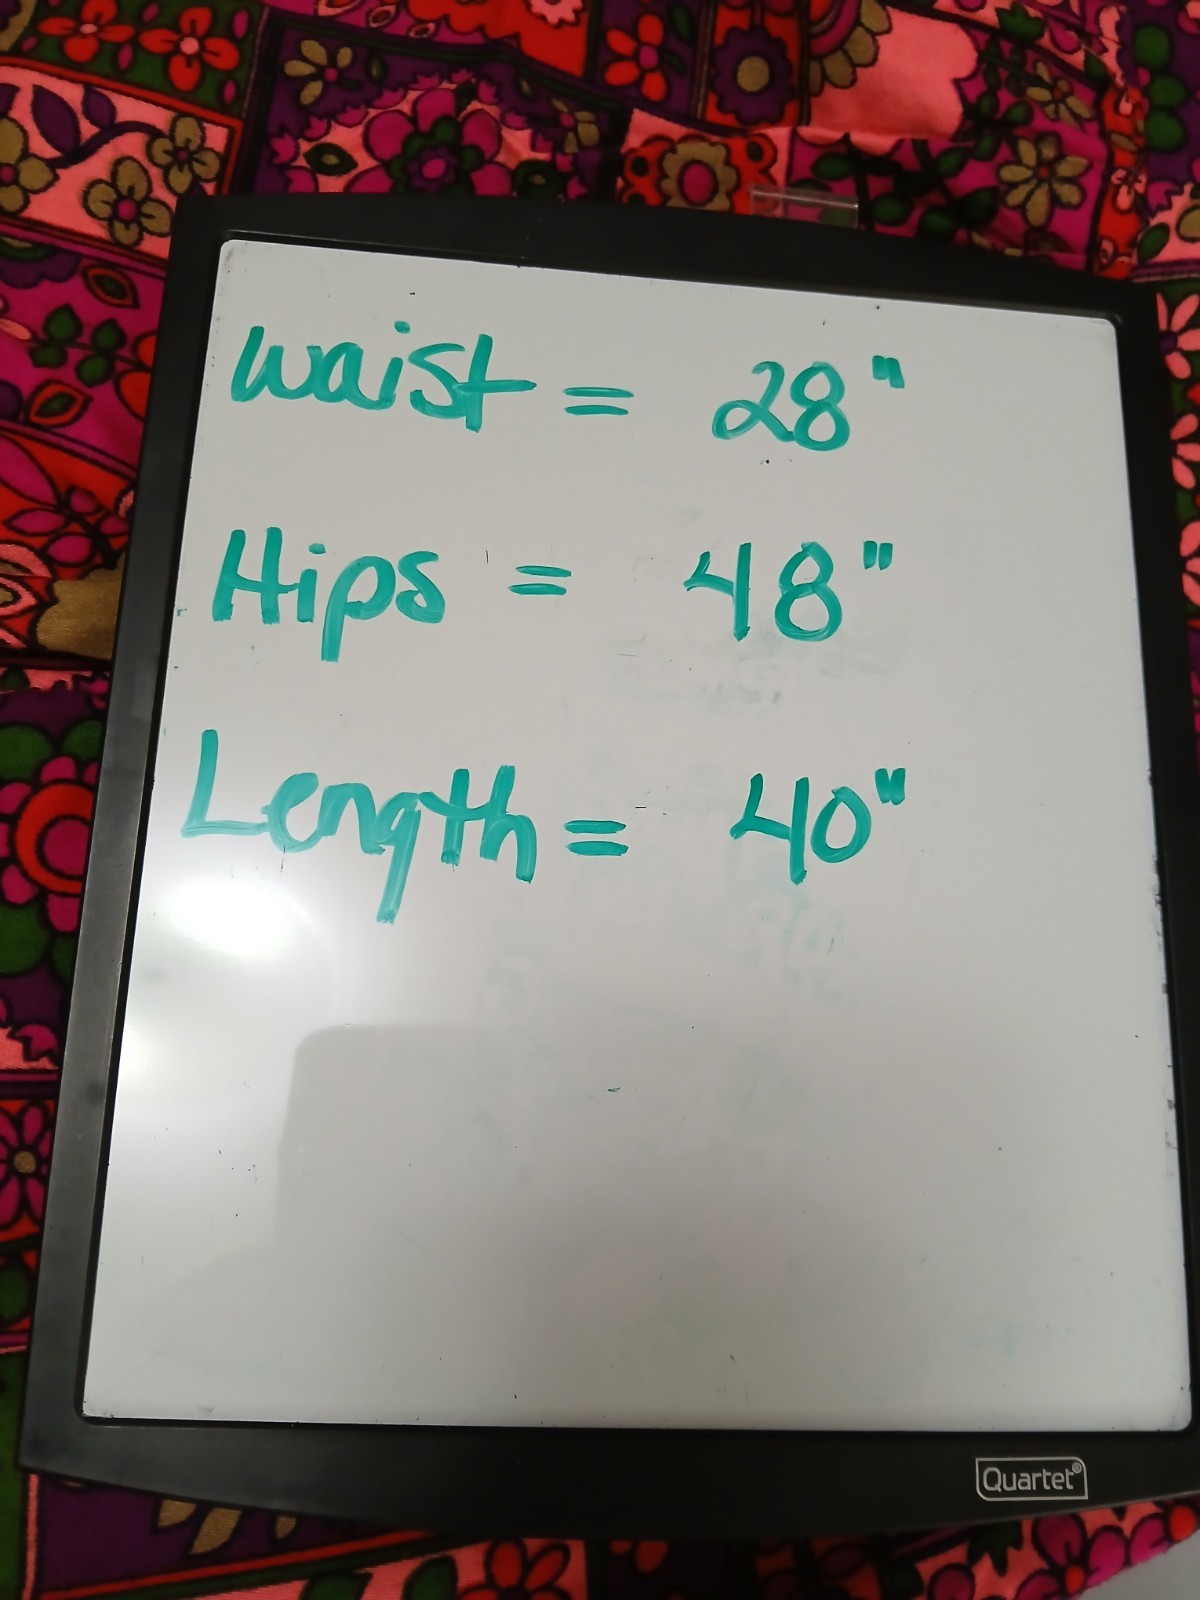 Waist = 28"
Hips = 48"
Length = 40"
Quartet®